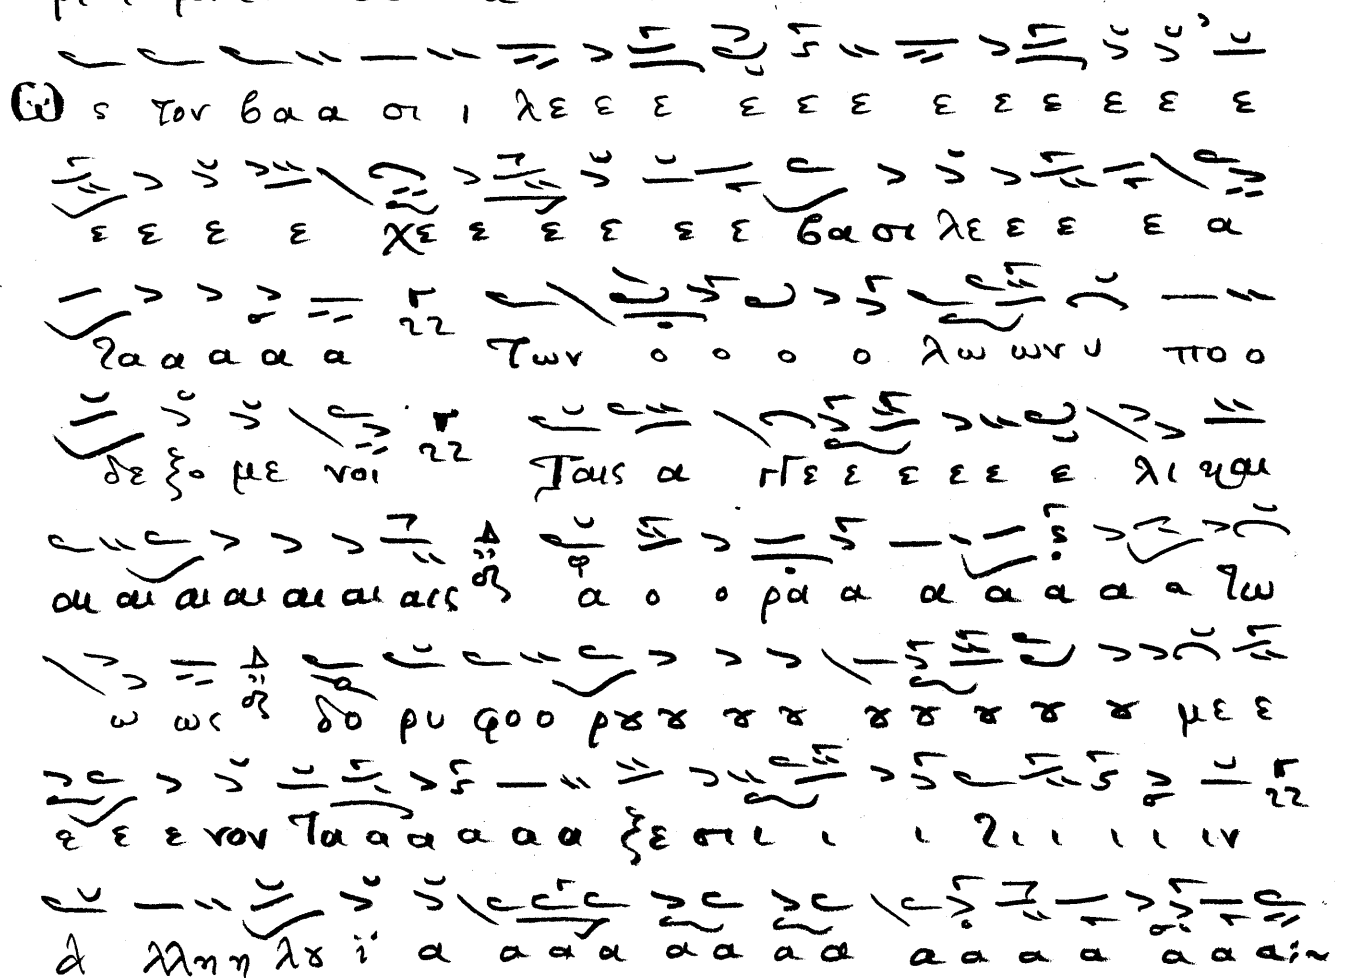 Ως τον βα α σι ι λε ε ε ε ε ε ε ε ε ε ε ε
ε ε ε ε χε ε ε ε ε ε βα σι λε ε ε ε α
τα α α α α των ο ο ο ο λω ων υ πο ο
δε ξο με νοι Ταις α γγε ε ε ε ε ε λι και
αι αι αι αι αι αι αις α ο ο ρα α α α α α α τω
ω ως δο ρυ φο ο ρου ου ου ου ου ου ου ου ου με ε
ε ε ε νον Τα α α α α α ξε σι ι ι ι ι ι ι ι ι ιν
Α λλη η λου ϊ α α α α α α α α α α α α α α α